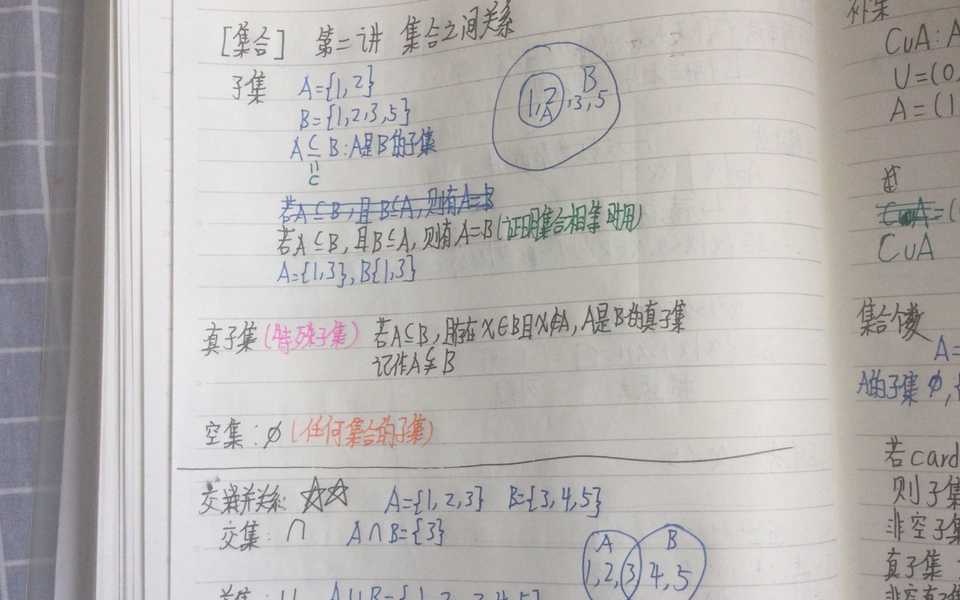 [集合] 第二讲 集合之间关系
子集 A={1,2}
B={1,2,3,5}
A⊆B:A是B的子集
若A⊆B,且B⊆A,则有A=B
若A⊆B,且B⊆A,则有A=B(证明集合相等时用)
A={1,3},B{1,3}
B
1,2 ,3,5
A
真子集(特殊子集) 若A⊆B,且存在x∈B且x∉A,A是B的真子集
记作A⫋B
空集:∅(任何集合的子集)
交并关系: ☆☆ A={1,2,3} B={3,4,5}
交集:∩ A∩B={3}
A B
1,2,3 4,5
补集
CuA:A
U=(0,
A=(1
CuA
集合个数
A=
A的子集∅,
若card
则子集
非空子集
真子集